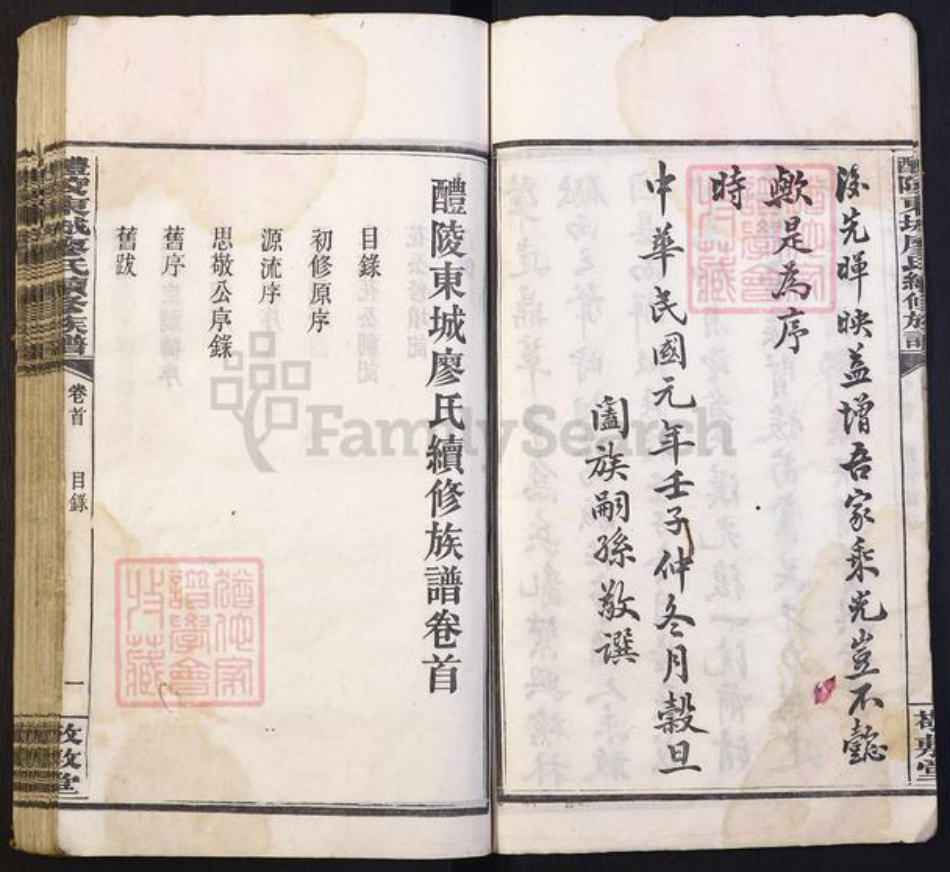 後先暉映益增吾家乘光豈不懿
歟是為序
時
中華民國元年壬子仲冬月穀旦
闔族嗣孫敬譔
醴陵東城廖氏續修族譜
醴陵東城廖氏續修族譜卷首
目錄
初修原序
源流序
思敬公序錄
舊序
舊跋
醴陵東城廖氏續修族譜
卷首
目錄
一
猶他家譜學會收藏
猶他家譜學會收藏
FamilySearch